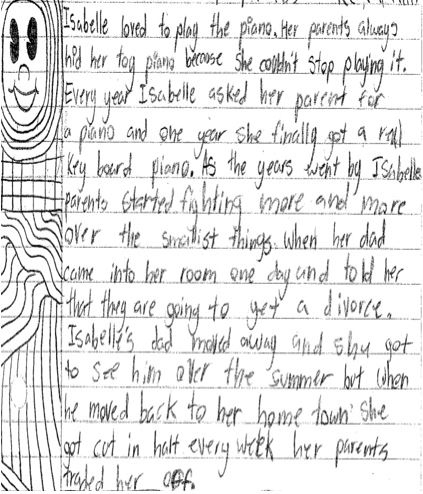 Isabelle loved to play the piano. Her parents always
hid her toy piano because she couldn't stop playing it.
Every year Isabelle asked her parent for
a piano and one year she finally got a real
key board piano. As the years went by Isabelle
parents started fighting more and more
over the smallist things. when her dad
came into her room one day and told her
that they are going to get a divorce.
Isabelle's dad moved away and she got
to see him over the summer but when
he moved back to her home town she
got cut in half every week her parents
traded her off.